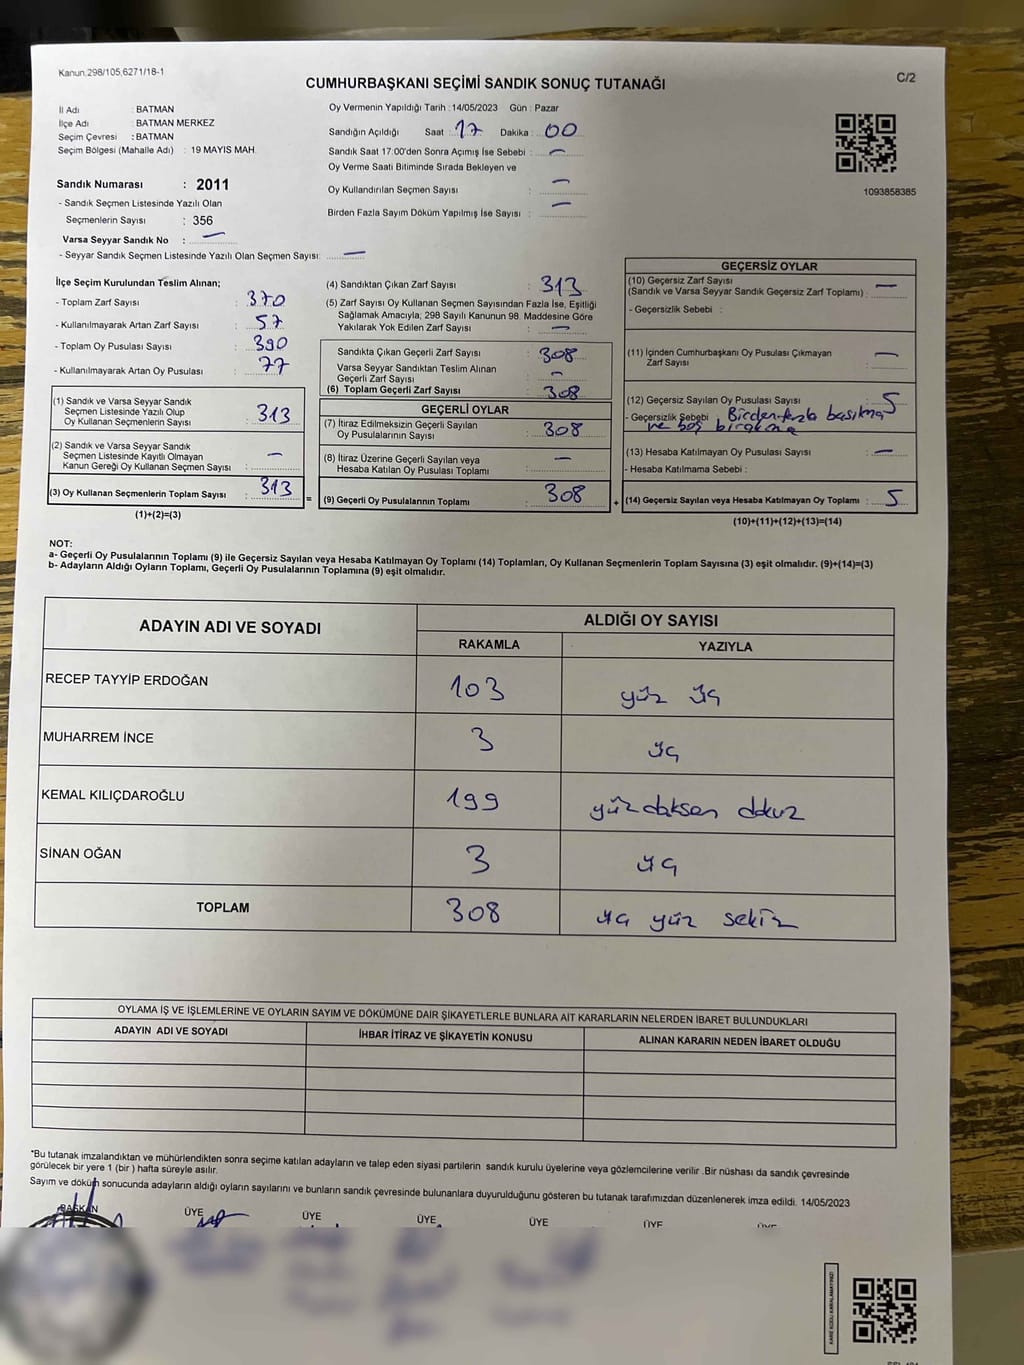 Kanun,298/105,6271/18-1
C/2
CUMHURBAŞKANI SEÇİMİ SANDIK SONUÇ TUTANAĞI
İl Adı : BATMAN
İlçe Adı : BATMAN MERKEZ
Seçim Çevresi : BATMAN
Seçim Bölgesi (Mahalle Adı) : 19 MAYIS MAH.
Sandık Numarası : 2011
- Sandık Seçmen Listesinde Yazılı Olan
Seçmenlerin Sayısı : 356
Varsa Seyyar Sandık No : —
- Seyyar Sandık Seçmen Listesinde Yazılı Olan Seçmen Sayısı: —
Oy Vermenin Yapıldığı Tarih : 14/05/2023 Gün : Pazar
Sandığın Açıldığı Saat : 17 Dakika : 00
Sandık Saat 17:00'den Sonra Açımış İse Sebebi : —
Oy Verme Saati Bitiminde Sırada Bekleyen ve
Oy Kullandırılan Seçmen Sayısı : —
Birden Fazla Sayım Döküm Yapılmış İse Sayısı : —
1093858385
İlçe Seçim Kurulundan Teslim Alınan;
- Toplam Zarf Sayısı : 370
- Kullanılmayarak Artan Zarf Sayısı : 57
- Toplam Oy Pusulası Sayısı : 390
- Kullanılmayarak Artan Oy Pusulası : 77
(1) Sandık ve Varsa Seyyar Sandık
Seçmen Listesinde Yazılı Olup
Oy Kullanan Seçmenlerin Sayısı : 313
(2) Sandık ve Varsa Seyyar Sandık
Seçmen Listesinde Kayıtlı Olmayan
Kanun Gereği Oy Kullanan Seçmen Sayısı : —
(3) Oy Kullanan Seçmenlerin Toplam Sayısı : 313
(1)+(2)=(3)
(4) Sandıktan Çıkan Zarf Sayısı : 313
(5) Zarf Sayısı Oy Kullanan Seçmen Sayısından Fazla İse, Eşitliği
Sağlamak Amacıyla; 298 Sayılı Kanunun 98. Maddesine Göre
Yakılarak Yok Edilen Zarf Sayısı : —
Sandıkta Çıkan Geçerli Zarf Sayısı : 308
Varsa Seyyar Sandıktan Teslim Alınan
Geçerli Zarf Sayısı : —
(6) Toplam Geçerli Zarf Sayısı : 308
GEÇERLİ OYLAR
(7) İtiraz Edilmeksizin Geçerli Sayılan
Oy Pusulalarının Sayısı : 308
(8) İtiraz Üzerine Geçerli Sayılan veya
Hesaba Katılan Oy Pusulası Toplamı : —
= (9) Geçerli Oy Pusulalarının Toplamı : 308
GEÇERSİZ OYLAR
(10) Geçersiz Zarf Sayısı
(Sandık ve Varsa Seyyar Sandık Geçersiz Zarf Toplamı) : —
- Geçersizlik Sebebi :
(11) İçinden Cumhurbaşkanı Oy Pusulası Çıkmayan
Zarf Sayısı : —
(12) Geçersiz Sayılan Oy Pusulası Sayısı : 5
- Geçersizlik Sebebi : Birden fazla basılma
ve boş bırakma
(13) Hesaba Katılmayan Oy Pusulası Sayısı : —
- Hesaba Katılmama Sebebi :
+ (14) Geçersiz Sayılan veya Hesaba Katılmayan Oy Toplamı : 5
(10)+(11)+(12)+(13)=(14)
NOT:
a- Geçerli Oy Pusulalarının Toplamı (9) ile Geçersiz Sayılan veya Hesaba Katılmayan Oy Toplamı (14) Toplamları, Oy Kullanan Seçmenlerin Toplam Sayısına (3) eşit olmalıdır. (9)+(14)=(3)
b- Adayların Aldığı Oyların Toplamı, Geçerli Oy Pusulalarının Toplamına (9) eşit olmalıdır.
ADAYIN ADI VE SOYADI ALDIĞI OY SAYISI
RAKAMLA YAZIYLA
RECEP TAYYİP ERDOĞAN 103 yüz üç
MUHARREM İNCE 3 üç
KEMAL KILIÇDAROĞLU 199 yüz doksan dokuz
SİNAN OĞAN 3 üç
TOPLAM 308 üç yüz sekiz
OYLAMA İŞ VE İŞLEMLERİNE VE OYLARIN SAYIM VE DÖKÜMÜNE DAİR ŞİKAYETLERLE BUNLARA AİT KARARLARIN NELERDEN İBARET BULUNDUKLARI
ADAYIN ADI VE SOYADI İHBAR İTİRAZ VE ŞİKAYETİN KONUSU ALINAN KARARIN NEDEN İBARET OLDUĞU
*Bu tutanak imzalandıktan ve mühürlendikten sonra seçime katılan adayların ve talep eden siyasi partilerin sandık kurulu üyelerine veya gözlemcilerine verilir .Bir nüshası da sandık çevresinde
görülecek bir yere 1 (bir ) hafta süreyle asılır.
Sayım ve döküm sonucunda adayların aldığı oyların sayılarını ve bunların sandık çevresinde bulunanlara duyurulduğunu gösteren bu tutanak tarafımızdan düzenlenerek imza edildi. 14/05/2023
BAŞKAN ÜYE ÜYE ÜYE ÜYE ÜYE ÜYE